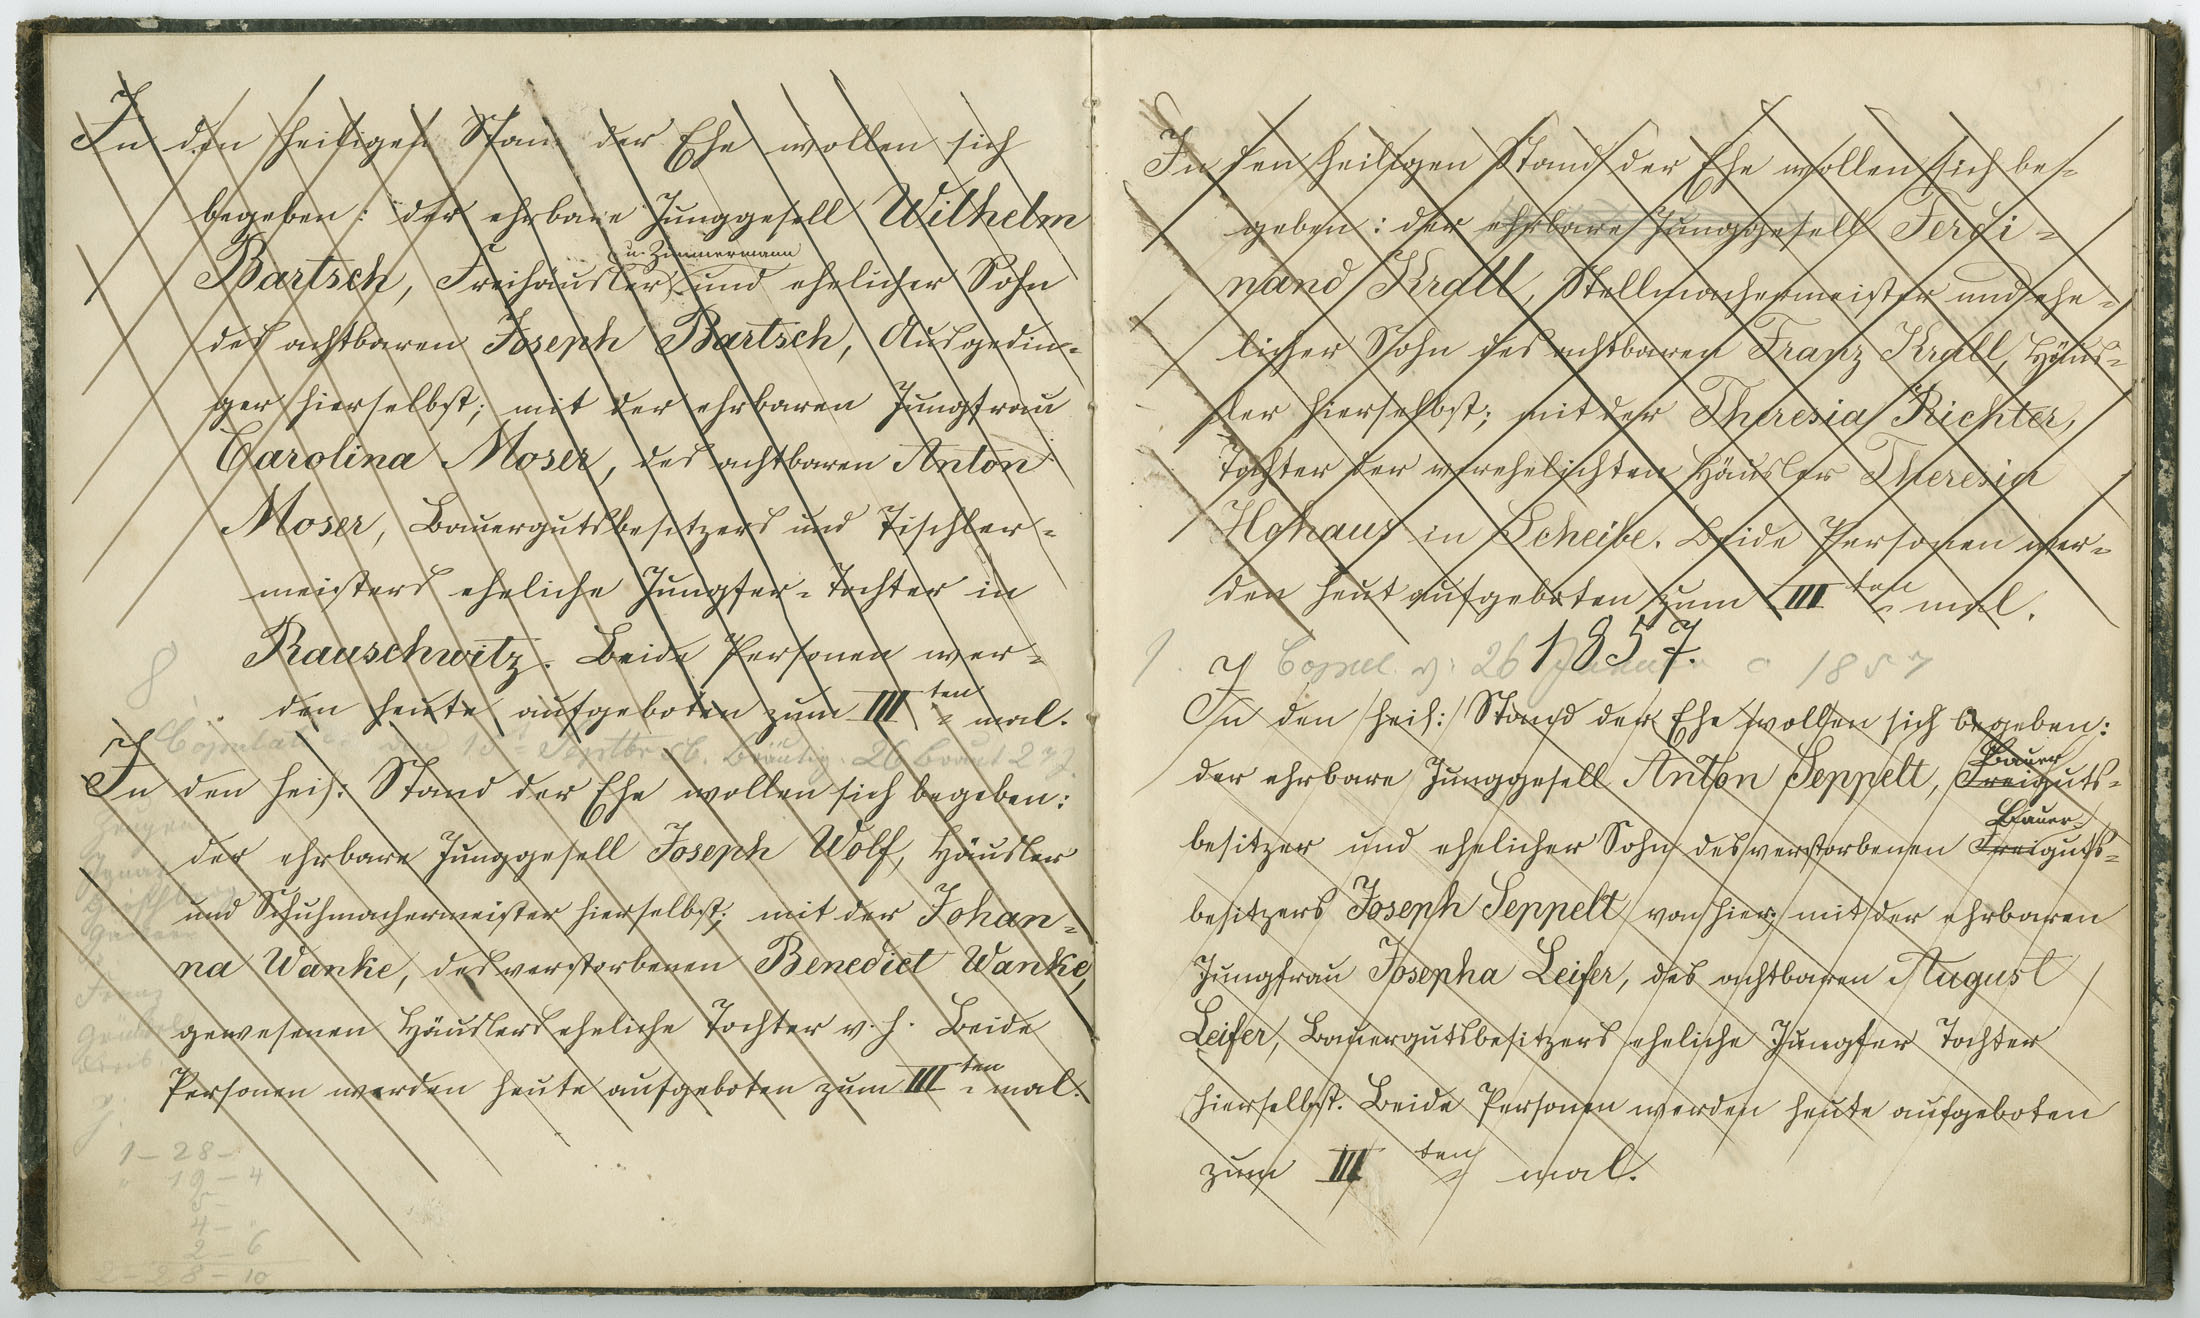 In den heiligen Stand der Ehe wollen sich
begeben: der ehrbare Junggesell Wilhelm
u. Zimmermann
Bartsch, Freihäusler und ehelicher Sohn
des achtbaren Joseph Bartsch, Ausgedin-
ger hierselbst; mit der ehrbaren Jungfrau
Carolina Moser, des achtbaren Anton
Moser, Bauergutsbesitzers und Tischler-
meisters eheliche Jungfer-Tochter in
Rauschwitz. Beide Personen wer-
den heute aufgeboten zum III ten mal.
8.
den 15t Septbr 56. Bräutig. 26 Braut 27 J.
In den heil: Stand der Ehe wollen sich begeben:
der ehrbare Junggesell Joseph Wolf, Häusler
und Schuhmachermeister hierselbst; mit der Johan-
na Wanke, des verstorbenen Benedict Wanke,
gewesenen Häuslers eheliche Tochter v. h. Beide
Personen werden heute aufgeboten zum III ten mal.
Zeugen
Ignatz
Franz
1 - 28 -
" 19 - 4
5 -
4 - "
2 - 6
2 - 28 - 10
In den heiligen Stand der Ehe wollen sich be-
geben: der ehrbare Junggesell Ferdi-
nand Krall, Stellmachermeister und ehe-
licher Sohn des achtbaren Franz Krall, Häus-
ler hierselbst; mit der Theresia Richter,
Tochter der verehelichten Häusler Theresia
Hohaus in Scheibe. Beide Personen wer-
den heut aufgeboten zum III ten mal.
1857.
1. Copul. d: 26 Januar 1857
In den heil: Stand der Ehe wollen sich begeben:
Bauer
der ehrbare Junggesell Anton Seppelt, Freiguts-
Bauer-
besitzer und ehelicher Sohn des verstorbenen Freiguts-
besitzers Joseph Seppelt von hier; mit der ehrbaren
Jungfrau Josepha Leifer, des achtbaren August
Leifer, Bauergutsbesitzers eheliche Jungfer Tochter
hierselbst. Beide Personen werden heute aufgeboten
zum III ten mal.